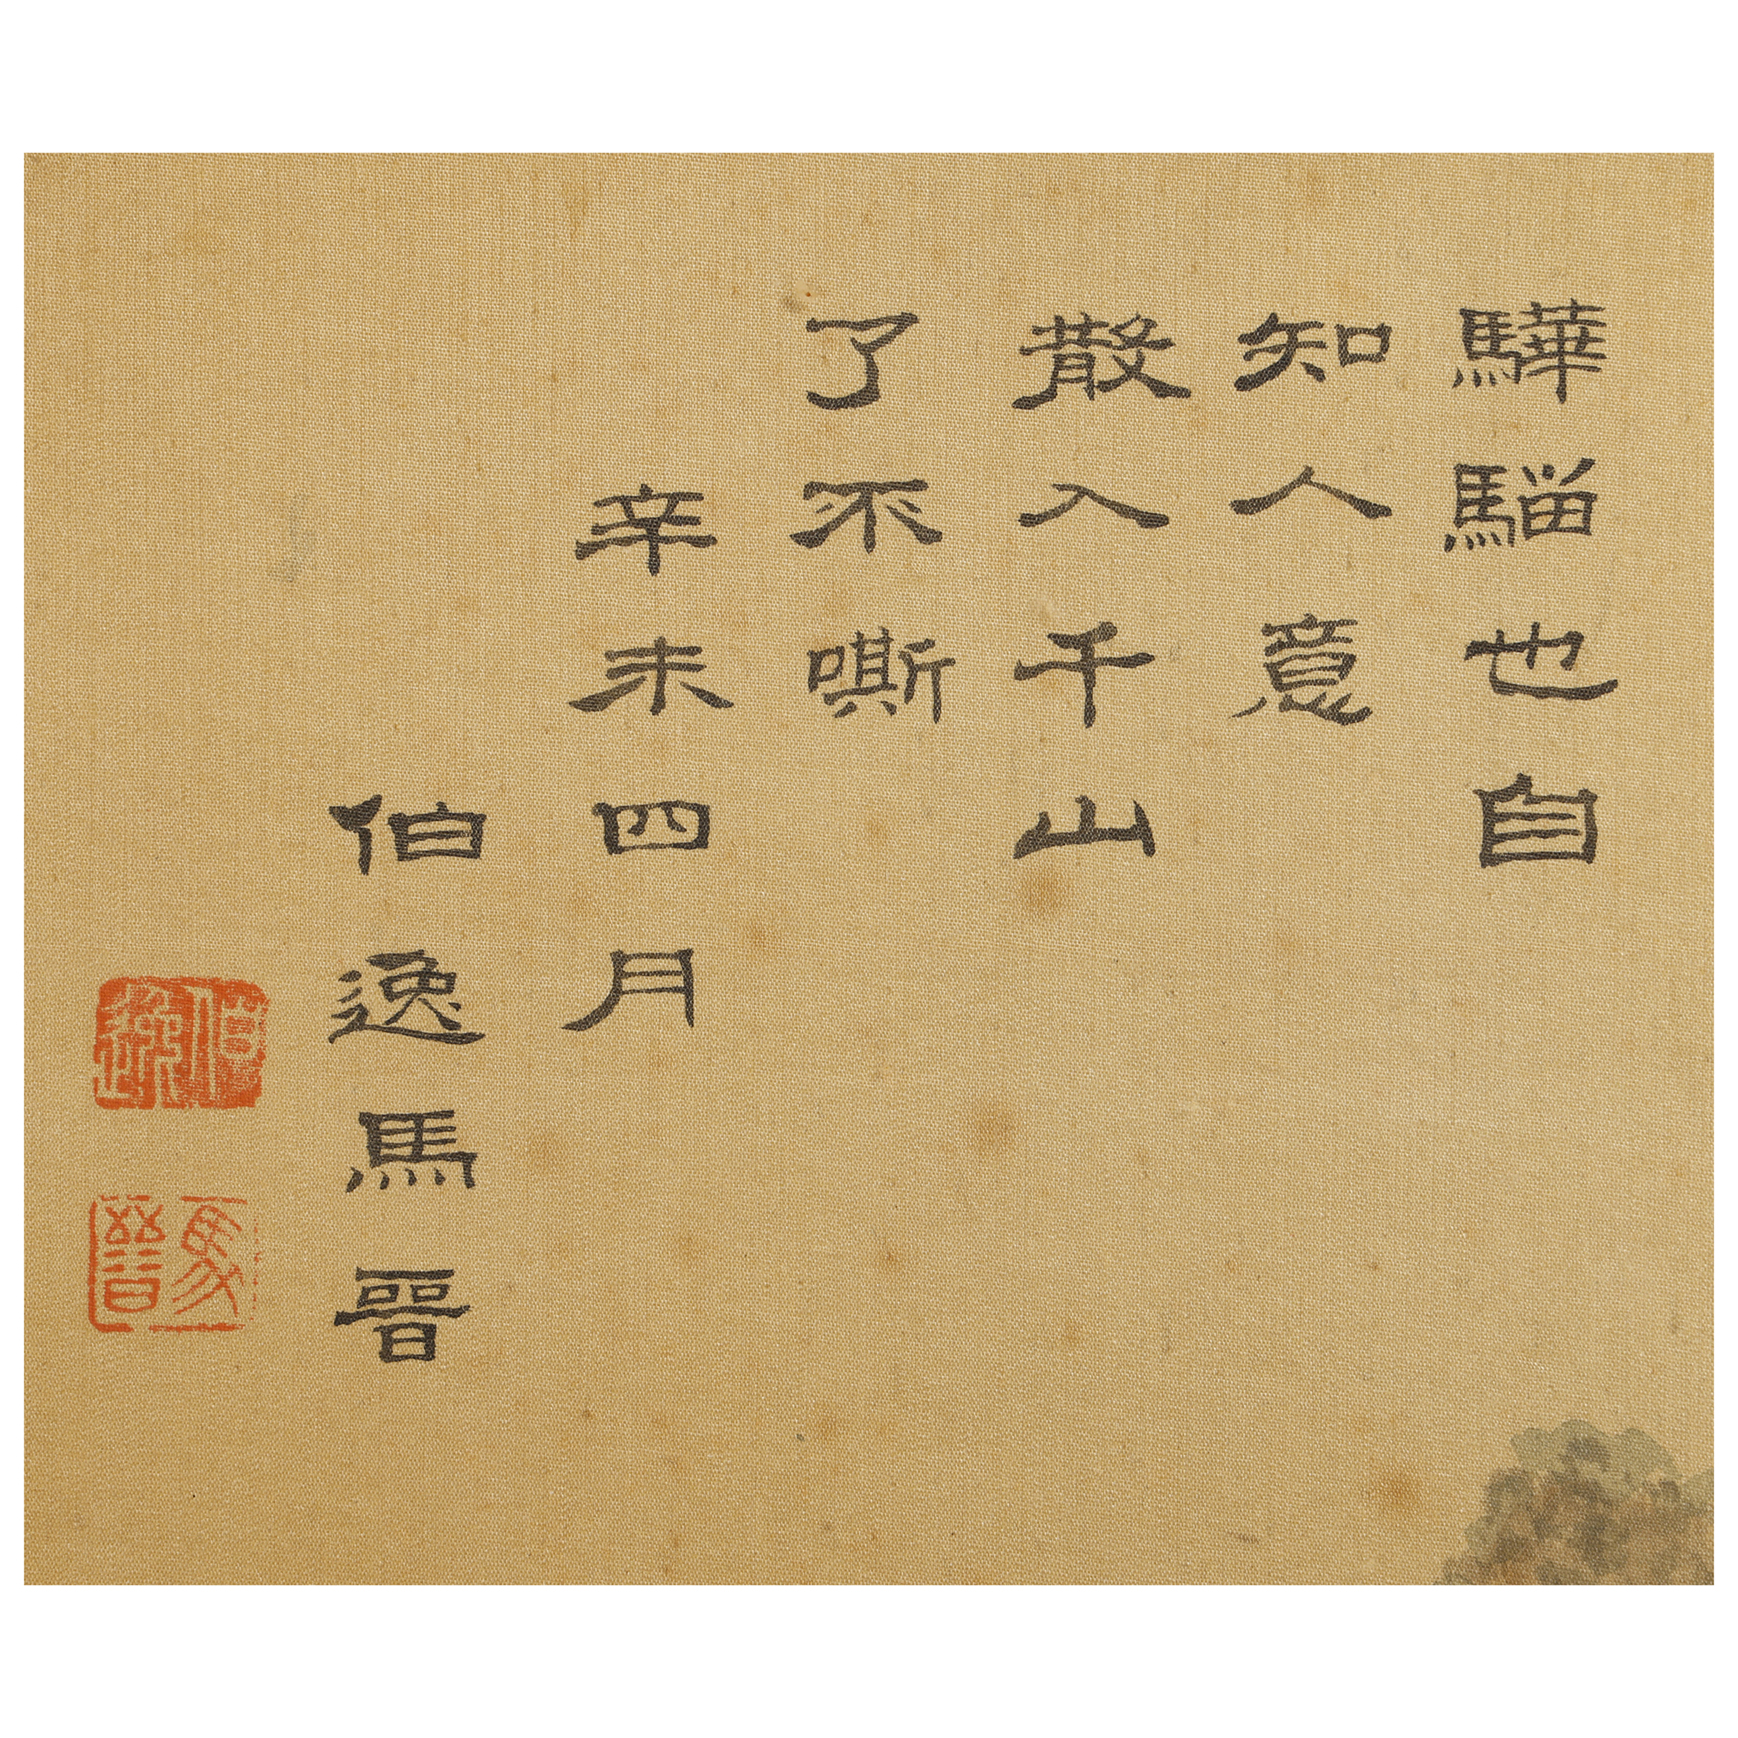 驊騮也自
知人意
散入千山
了不嘶
辛未四月
伯逸馬晉
伯逸
馬晉